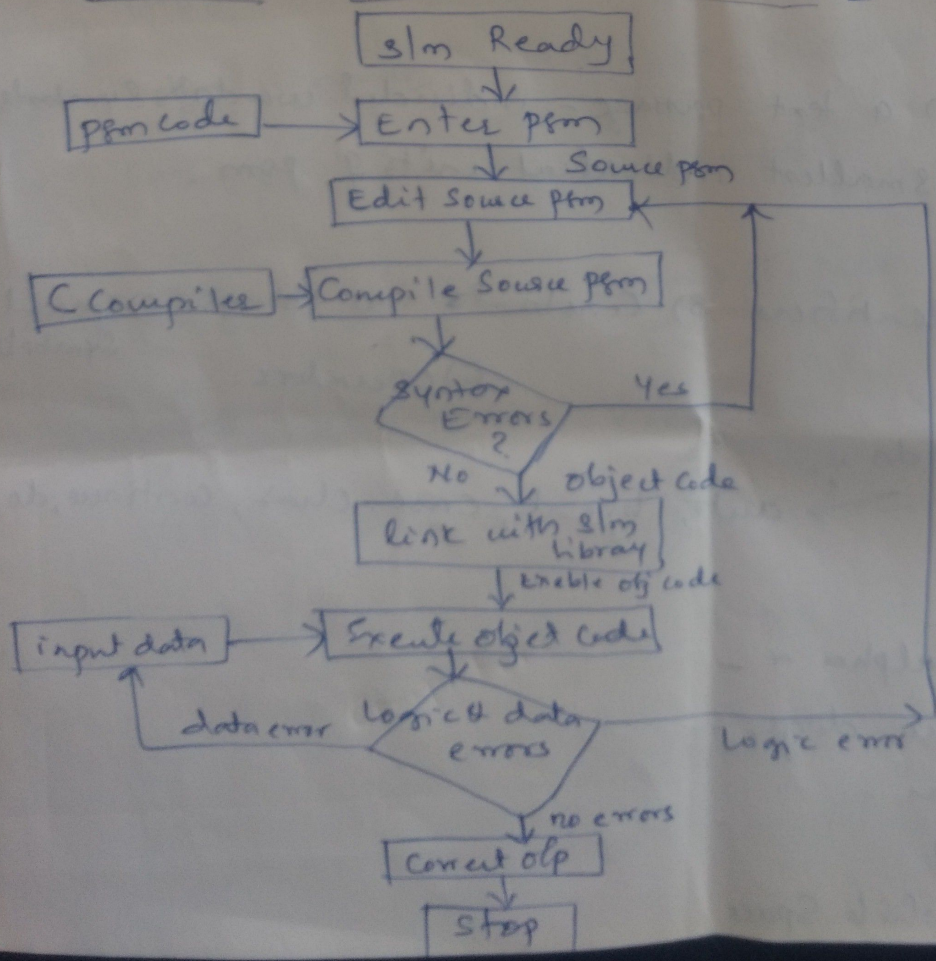 s/m Ready
pgm code
Enter pgm
Source pgm
Edit Source pgm
C Compiler
Compile Source pgm
Syntax
Errors
?
Yes
No
Object Code
link with s/m
library
Exeble obj code
input data
Execute object Code
data error
Logic & data
errors
Logic error
no errors
Correct o/p
Stop